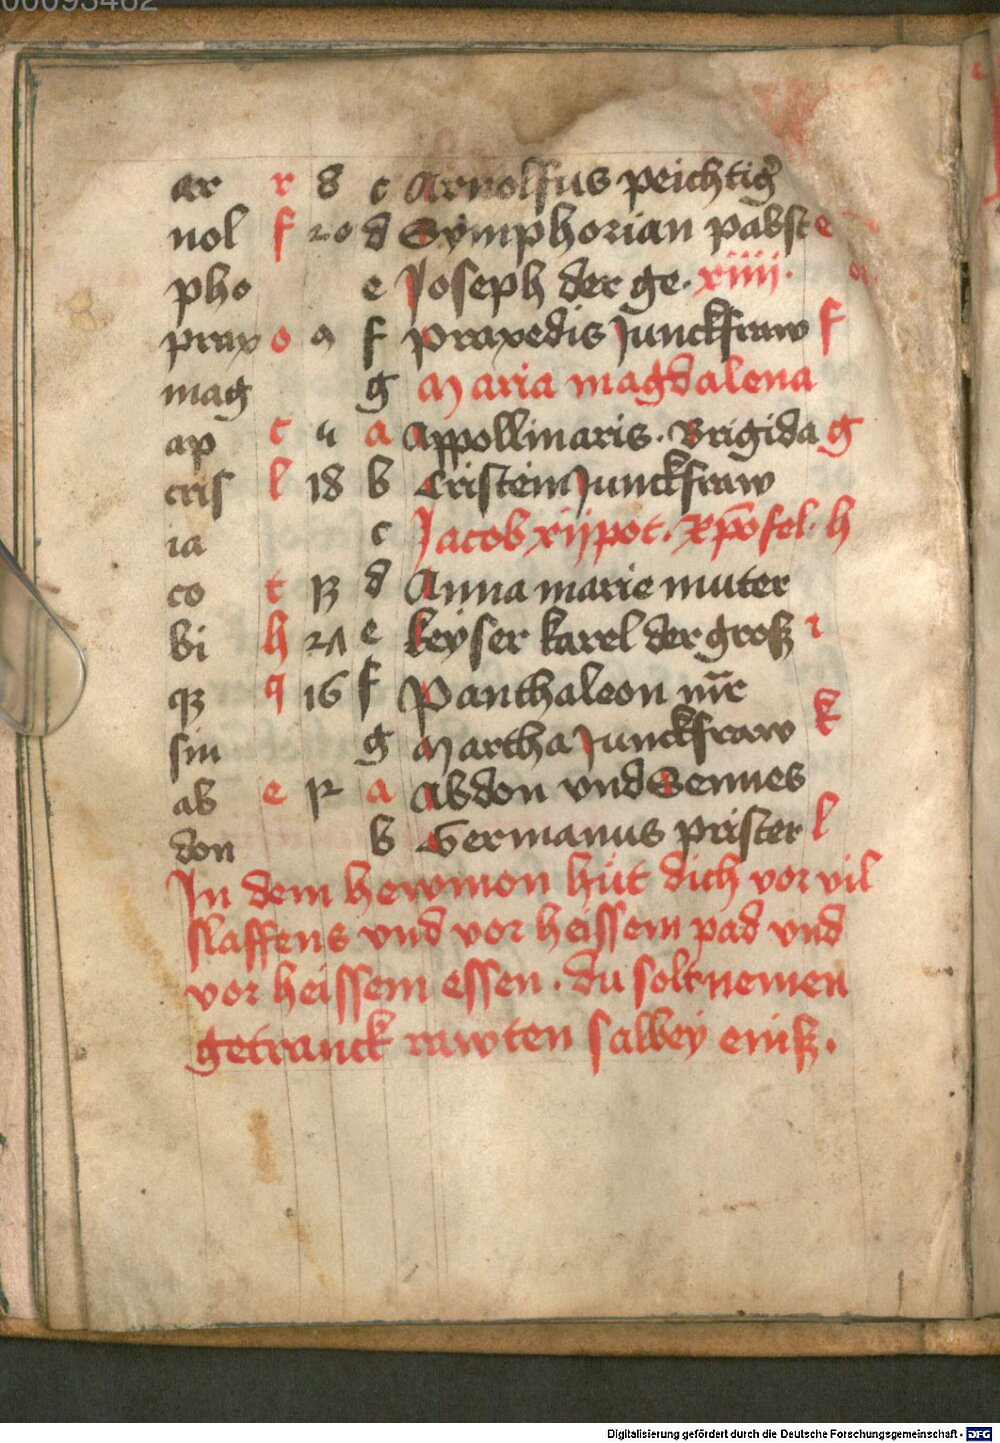 00093462
ar r 8 c Arnolfus peichtig̉
nol f 20 d Symphorian pabst e
pho e Joseph der ge. xiiii.
prax o 9 f Praxedis Junckfraw f
mag g Maria magdalena
ap c 4 a Appollinaris. Brigida g
cris l 18 b Cristein Junckfraw
ia c Jacob xijpot. Xp̄ofel. h
co t d Anna marie muter
bi h e keyser karel der groß i
q 16 f Panthaleon
sin g Martha Junckfraw k
ab e 12 a Abdon vnd Sennes
don b Germanus prister l
In dem hewmon hüt dich vor vil
slaffens vnd vor heissem pad vnd
vor heissem essen. du solt nemen
getranck rawten salbey eniß.
Digitalisierung gefördert durch die Deutsche Forschungsgemeinschaft - DFG